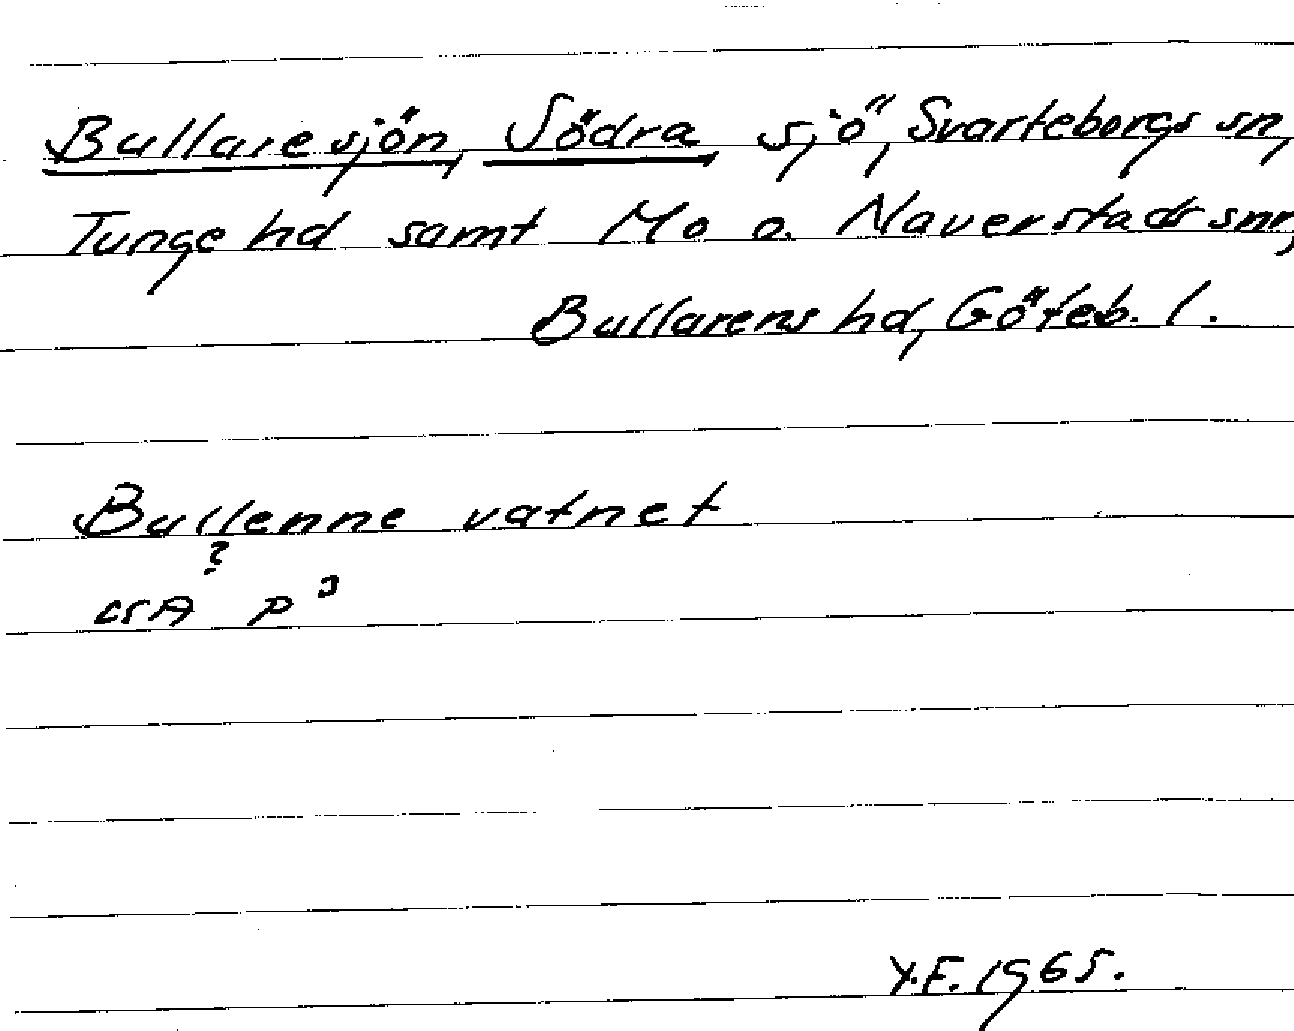 Bullaresjön, Södra sjö, Svarteborgs sn,
Tunge hd samt Mo o. Naverstads snr,
Bullarens hd, Göteb. l.
Bullenne vatnet
?
p
Y.F. 1965.